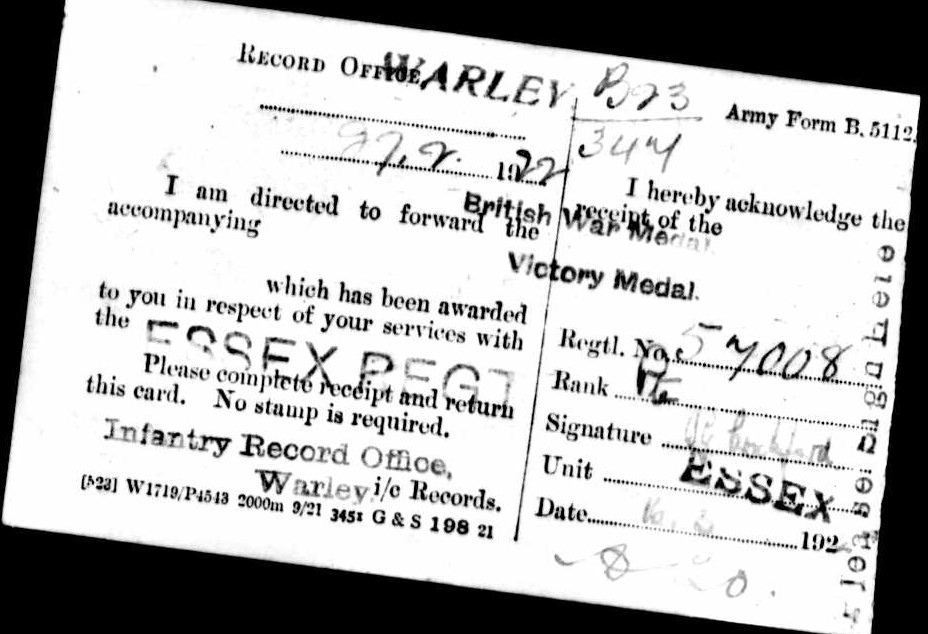 RECORD OFFICE WARLEY
27.2. 1922
I am directed to forward the
accompanying British War Medal
Victory Medal.
which has been awarded
to you in respect of your services with
the ESSEX REGT
Please complete receipt and return
this card. No stamp is required.
Infantry Record Office,
Warley i/c Records.
W1719/P4543 2000m 9/21 345I G & S 198 21
B23
344
Army Form B. 5112.
I hereby acknowledge the
receipt of the
Regtl. No. 57008
Rank Pte
Signature
Unit ESSEX
Date 192